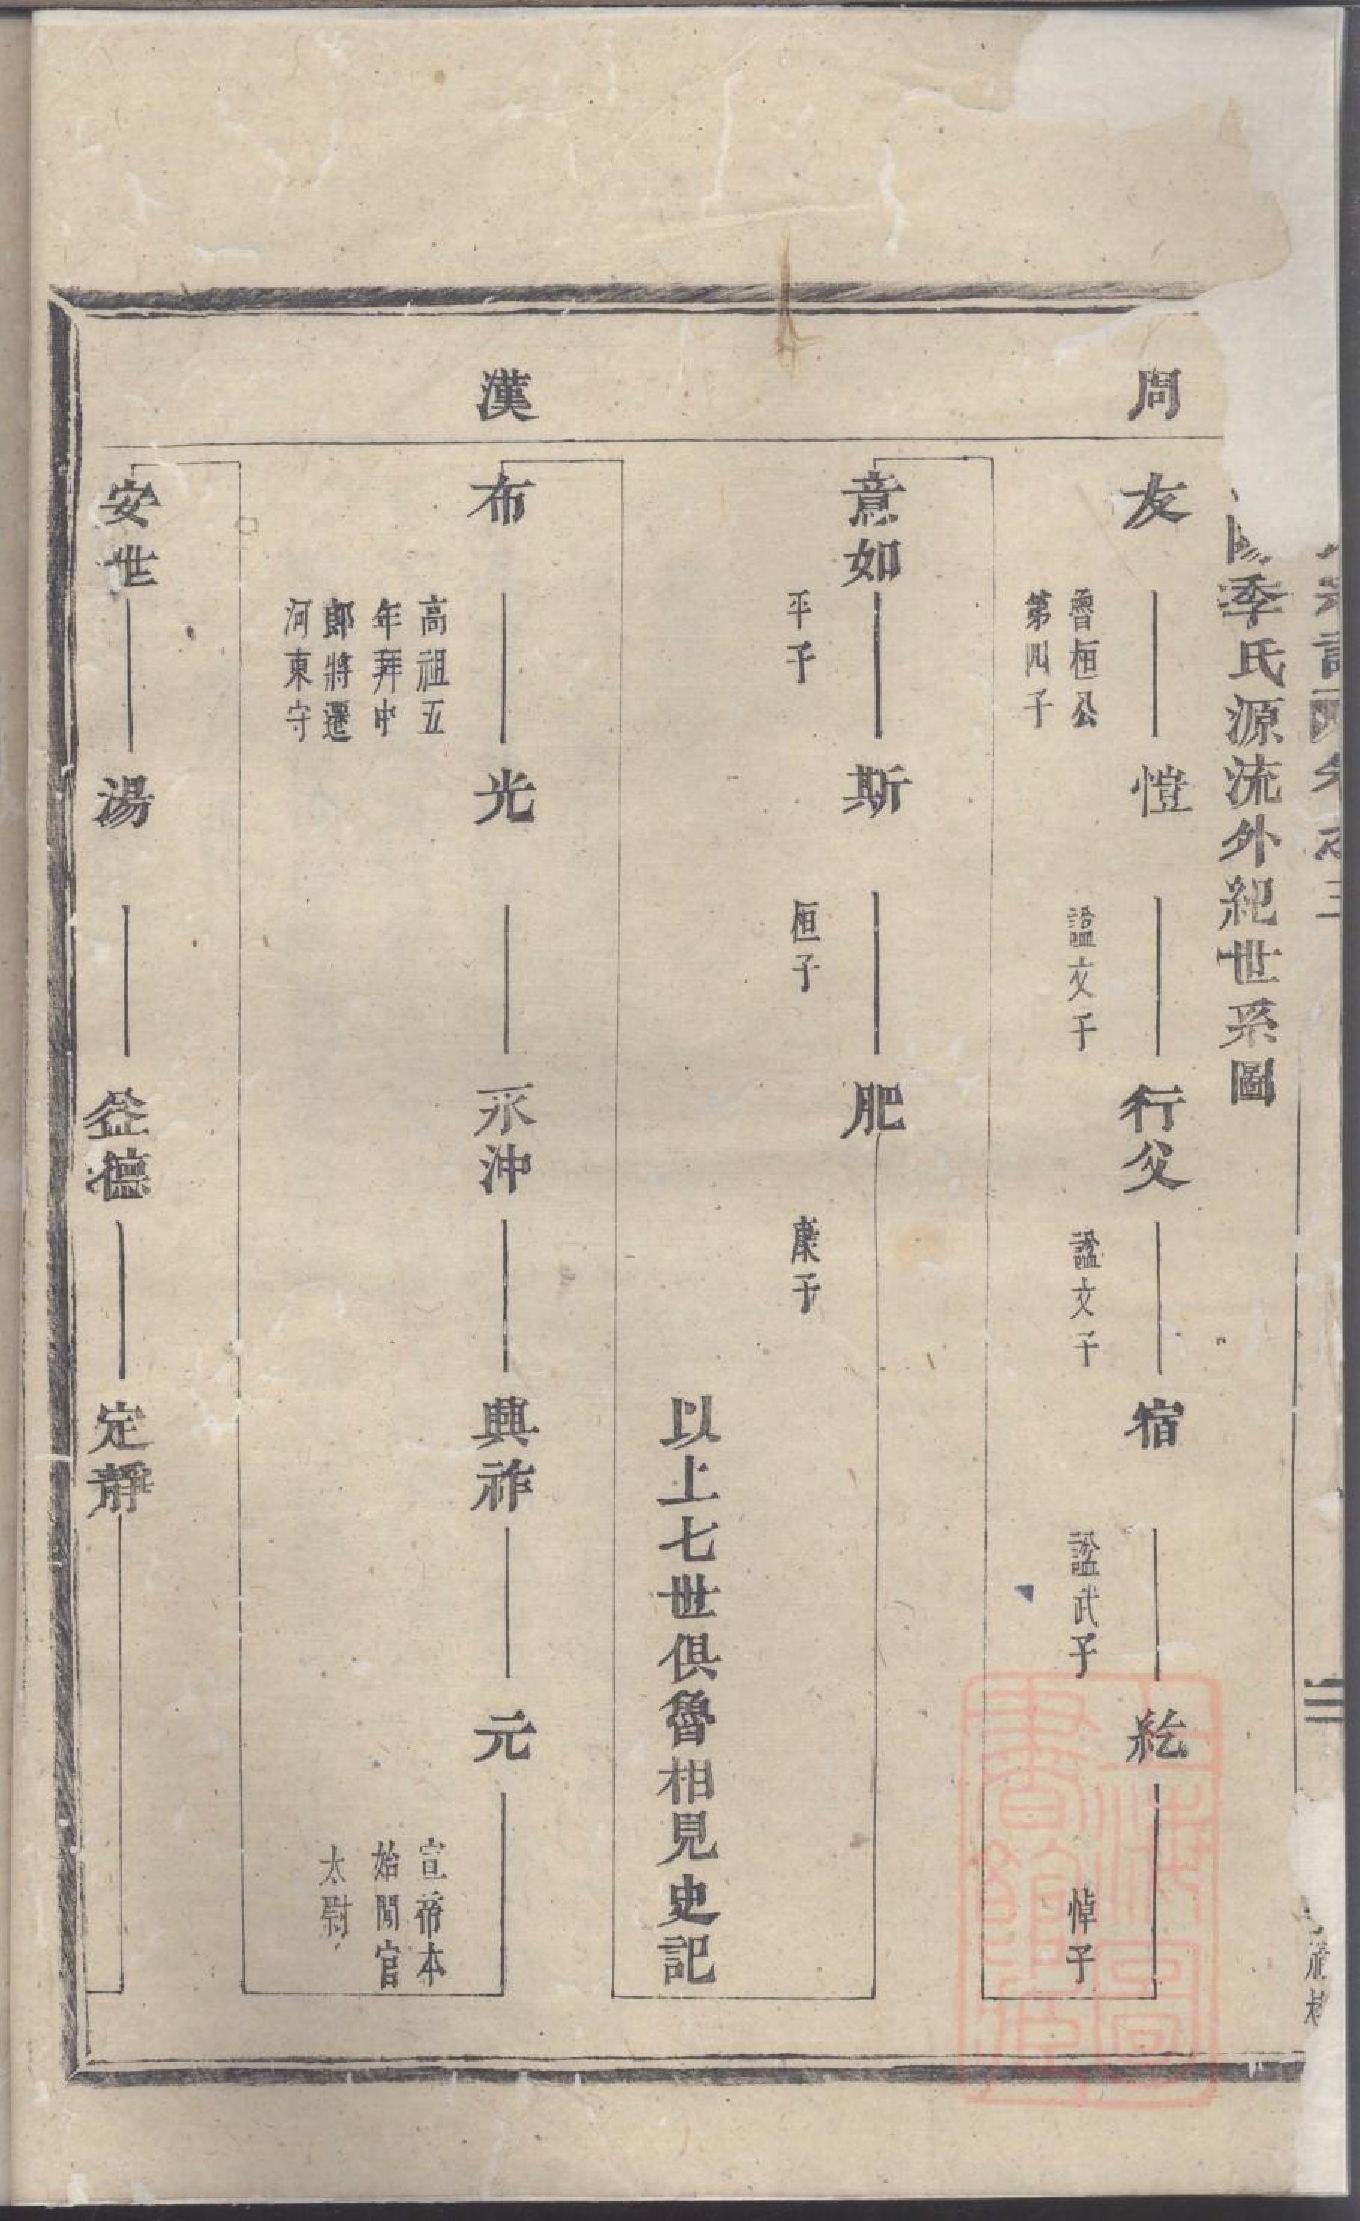 季氏源流外紀世系圖
周
友
魯桓公
第四子
愷
諡文子
行父
諡文子
宿
諡武子
紇
悼子
意如
平子
斯
桓子
肥
康子
以上七世俱魯相見史記
漢
布
高祖五
年拜中
郎將遷
河東守
光
永沖
興祚
元
宣帝本
始間官
太尉
安世
湯
益德
定靜